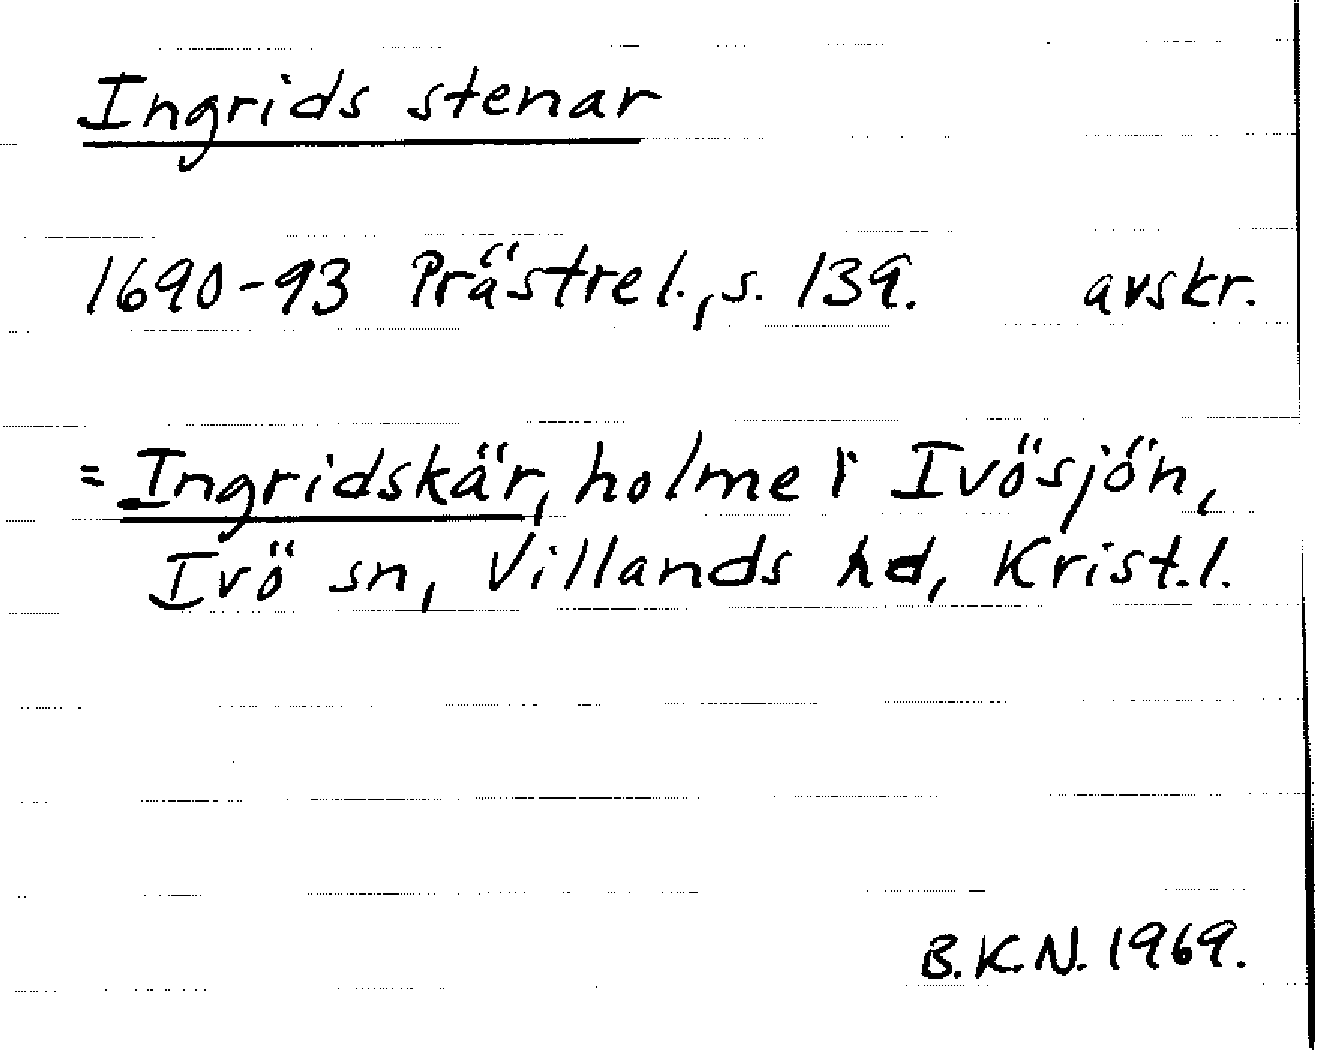 Ingrids stenar
1690-93 Prästrel., s. 139. avskr.
= Ingridskär, holme i Ivösjön,
Ivö sn, Villands hd, Krist.l.
B.K.N. 1969.